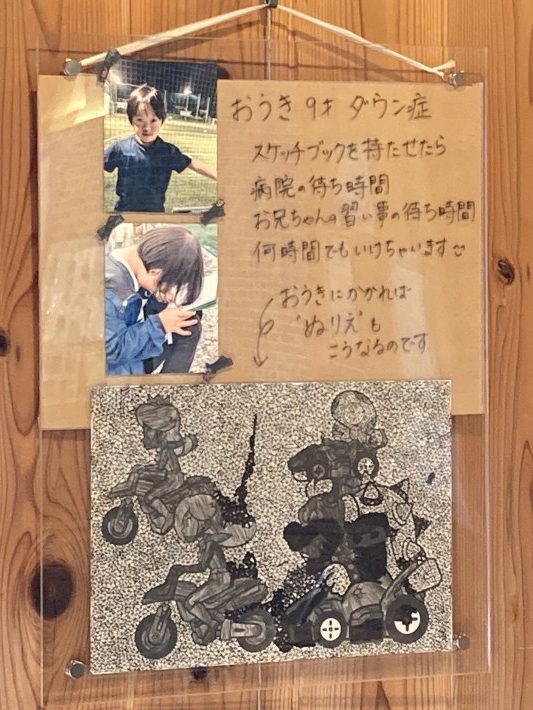 おうき 9才 ダウン症
スケッチブックを持たせたら
病院の待ち時間
お兄ちゃんの習い事の待ち時間
何時間でもいけちゃいます
おうきにかかれば
"ぬりえ"も
こうなるのです